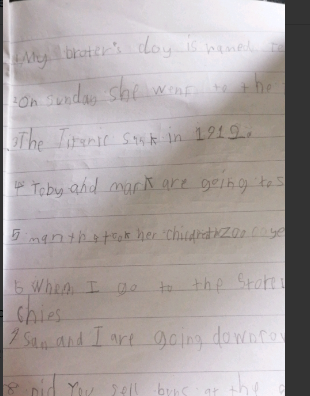 1 My broter's doy is named
2 On Sunday She went to the
3 The Titanic Sank in 1912.
4 Toby and mark are going to s
5 her
6 When I go to the Store
Chies
7 San and I are going downtow
8 Did You sell at the